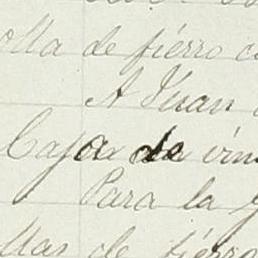 olla de fierro c
A Juan
Caja de vin
Para la
llas de fierro